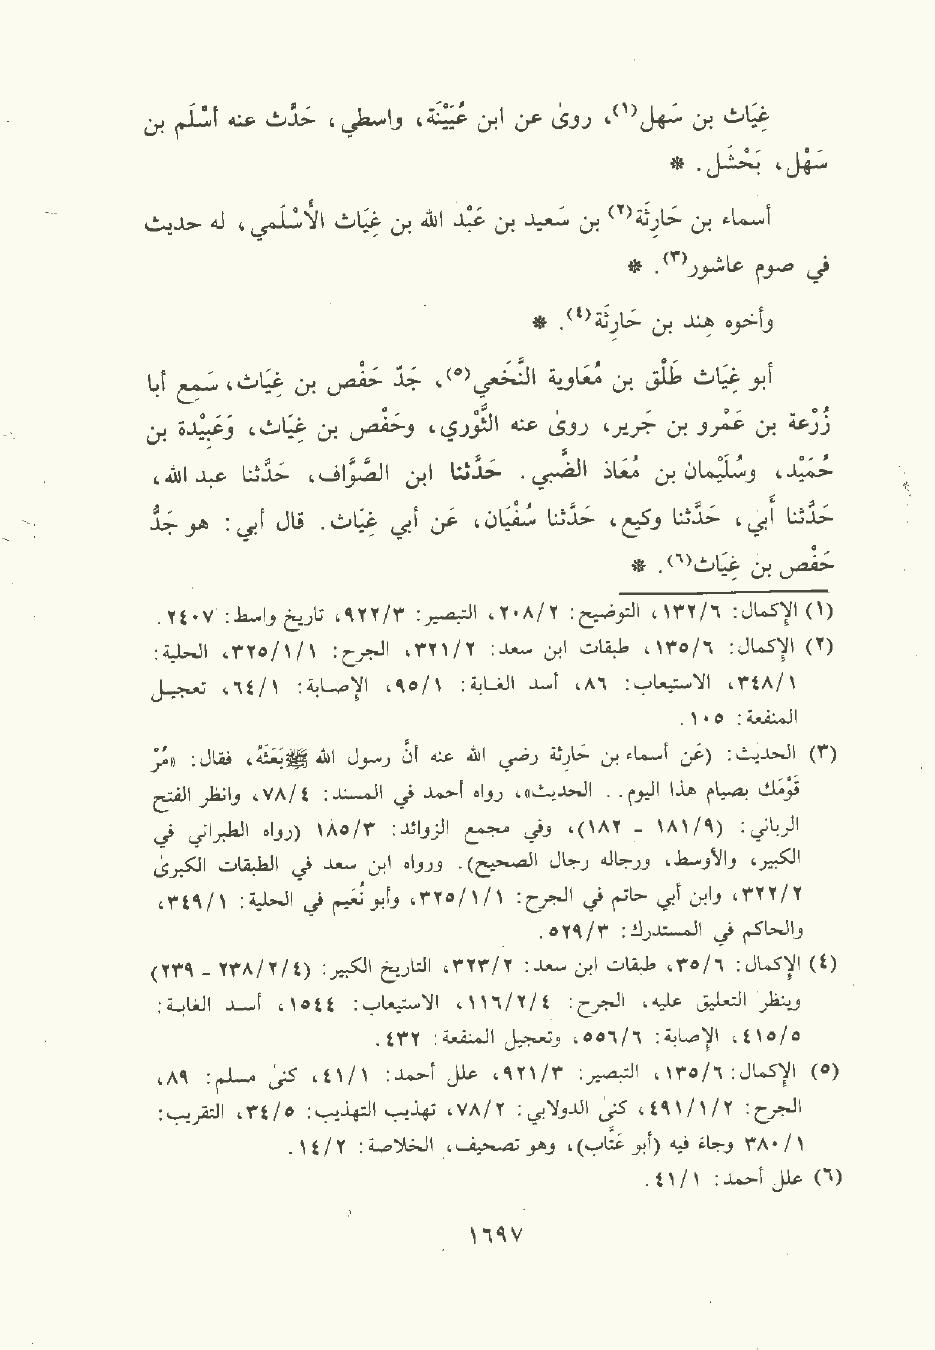 غِيَاث بن سَهل(١)، روىٰ عن ابن عُيَيْنَة، واسطي، حَدَّث عنه أسْلَم بن
سَهْل، بَحْشَل. *
أسماء بن حَارِثَة(٢) بن سَعيد بن عَبْد الله بن غِيَاث الأَسْلَمي، له حديث
في صوم عاشور(٣). *
وأخوه هِند بن حَارِثَة(٤). *
أبو غِيَاث طَلْق بن مُعَاوية النَّخَعي(٥)، جَدّ حَفْص بن غِيَاث، سَمِع أبا
زُرْعة بن عَمْرو بن جَرير، روىٰ عنه الثَّوْري، وحَفْص بن غِيَاث، وَعَبِيْدة بن
حُمَيْد، وسُلَيْمان بن مُعَاذ الضَّبي. حَدَّثنا ابن الصَّوَّاف، حَدَّثنا عبد الله،
حَدَّثنا أَبي، حَدَّثنا وكيع، حَدَّثنا سُفْيَان، عَن أبي غِيَاث. قال أبي: هو جَدُّ
حَفْص بن غِيَاث(٦). *
(١) الإكمال: ١٣٢/٦، التوضيح: ٢٠٨/٢، التبصير: ٩٢٢/٣، تاريخ واسط: ٢٤٠٧.
(٢) الإكمال: ١٣٥/٦، طبقات ابن سعد: ٣٢١/٢، الجرح: ٣٢٥/١/١، الحلية:
٣٤٨/١، الاستيعاب: ٨٦، أسد الغابة: ٩٥/١، الإصابة: ٦٤/١، تعجيل
المنفعة: ١٠٥.
(٣) الحديث: (عَن أسماء بن حَارثة رضي الله عنه أنَّ رسول الله ﷺ بَعَثَهُ، فقال: «مُرْ
قَوْمَك بصيام هذا اليوم.. الحديث»، رواه أحمد في المسند: ٧٨/٤، وانظر الفتح
الرباني: (١٨١/٩ - ١٨٢)، وفي مجمع الزوائد: ١٨٥/٣ (رواه الطبراني في
الكبير، والأوسط، ورجاله رجال الصحيح). ورواه ابن سعد في الطبقات الكبرىٰ
٣٢٢/٢، وابن أبي حاتم في الجرح: ٣٢٥/١/١، وأبو نُعَيم في الحلية: ٣٤٩/١،
والحاكم في المستدرك: ٥٢٩/٣.
(٤) الإكمال: ٣٥/٦، طبقات ابن سعد: ٣٢٣/٢، التاريخ الكبير: (٢٣٨/٢/٤ - ٢٣٩)
وينظر التعليق عليه، الجرح: ١١٦/٢/٤، الاستيعاب: ١٥٤٤، أسد الغابة:
٤١٥/٥، الإصابة: ٥٥٦/٦، وتعجيل المنفعة: ٤٣٢.
(٥) الإكمال: ١٣٥/٦، التبصير: ٩٢١/٣، علل أحمد: ٤١/١، كنىٰ مسلم: ٨٩،
الجرح: ٤٩١/١/٢، كنىٰ الدولابي: ٧٨/٢، تهذيب التهذيب: ٣٤/٥، التقريب:
٣٨٠/١ وجاءَ فيه (أبو عَتَّاب)، وهو تصحيف، الخلاصة: ١٤/٢.
(٦) علل أحمد: ٤١/١.
١٦٩٧